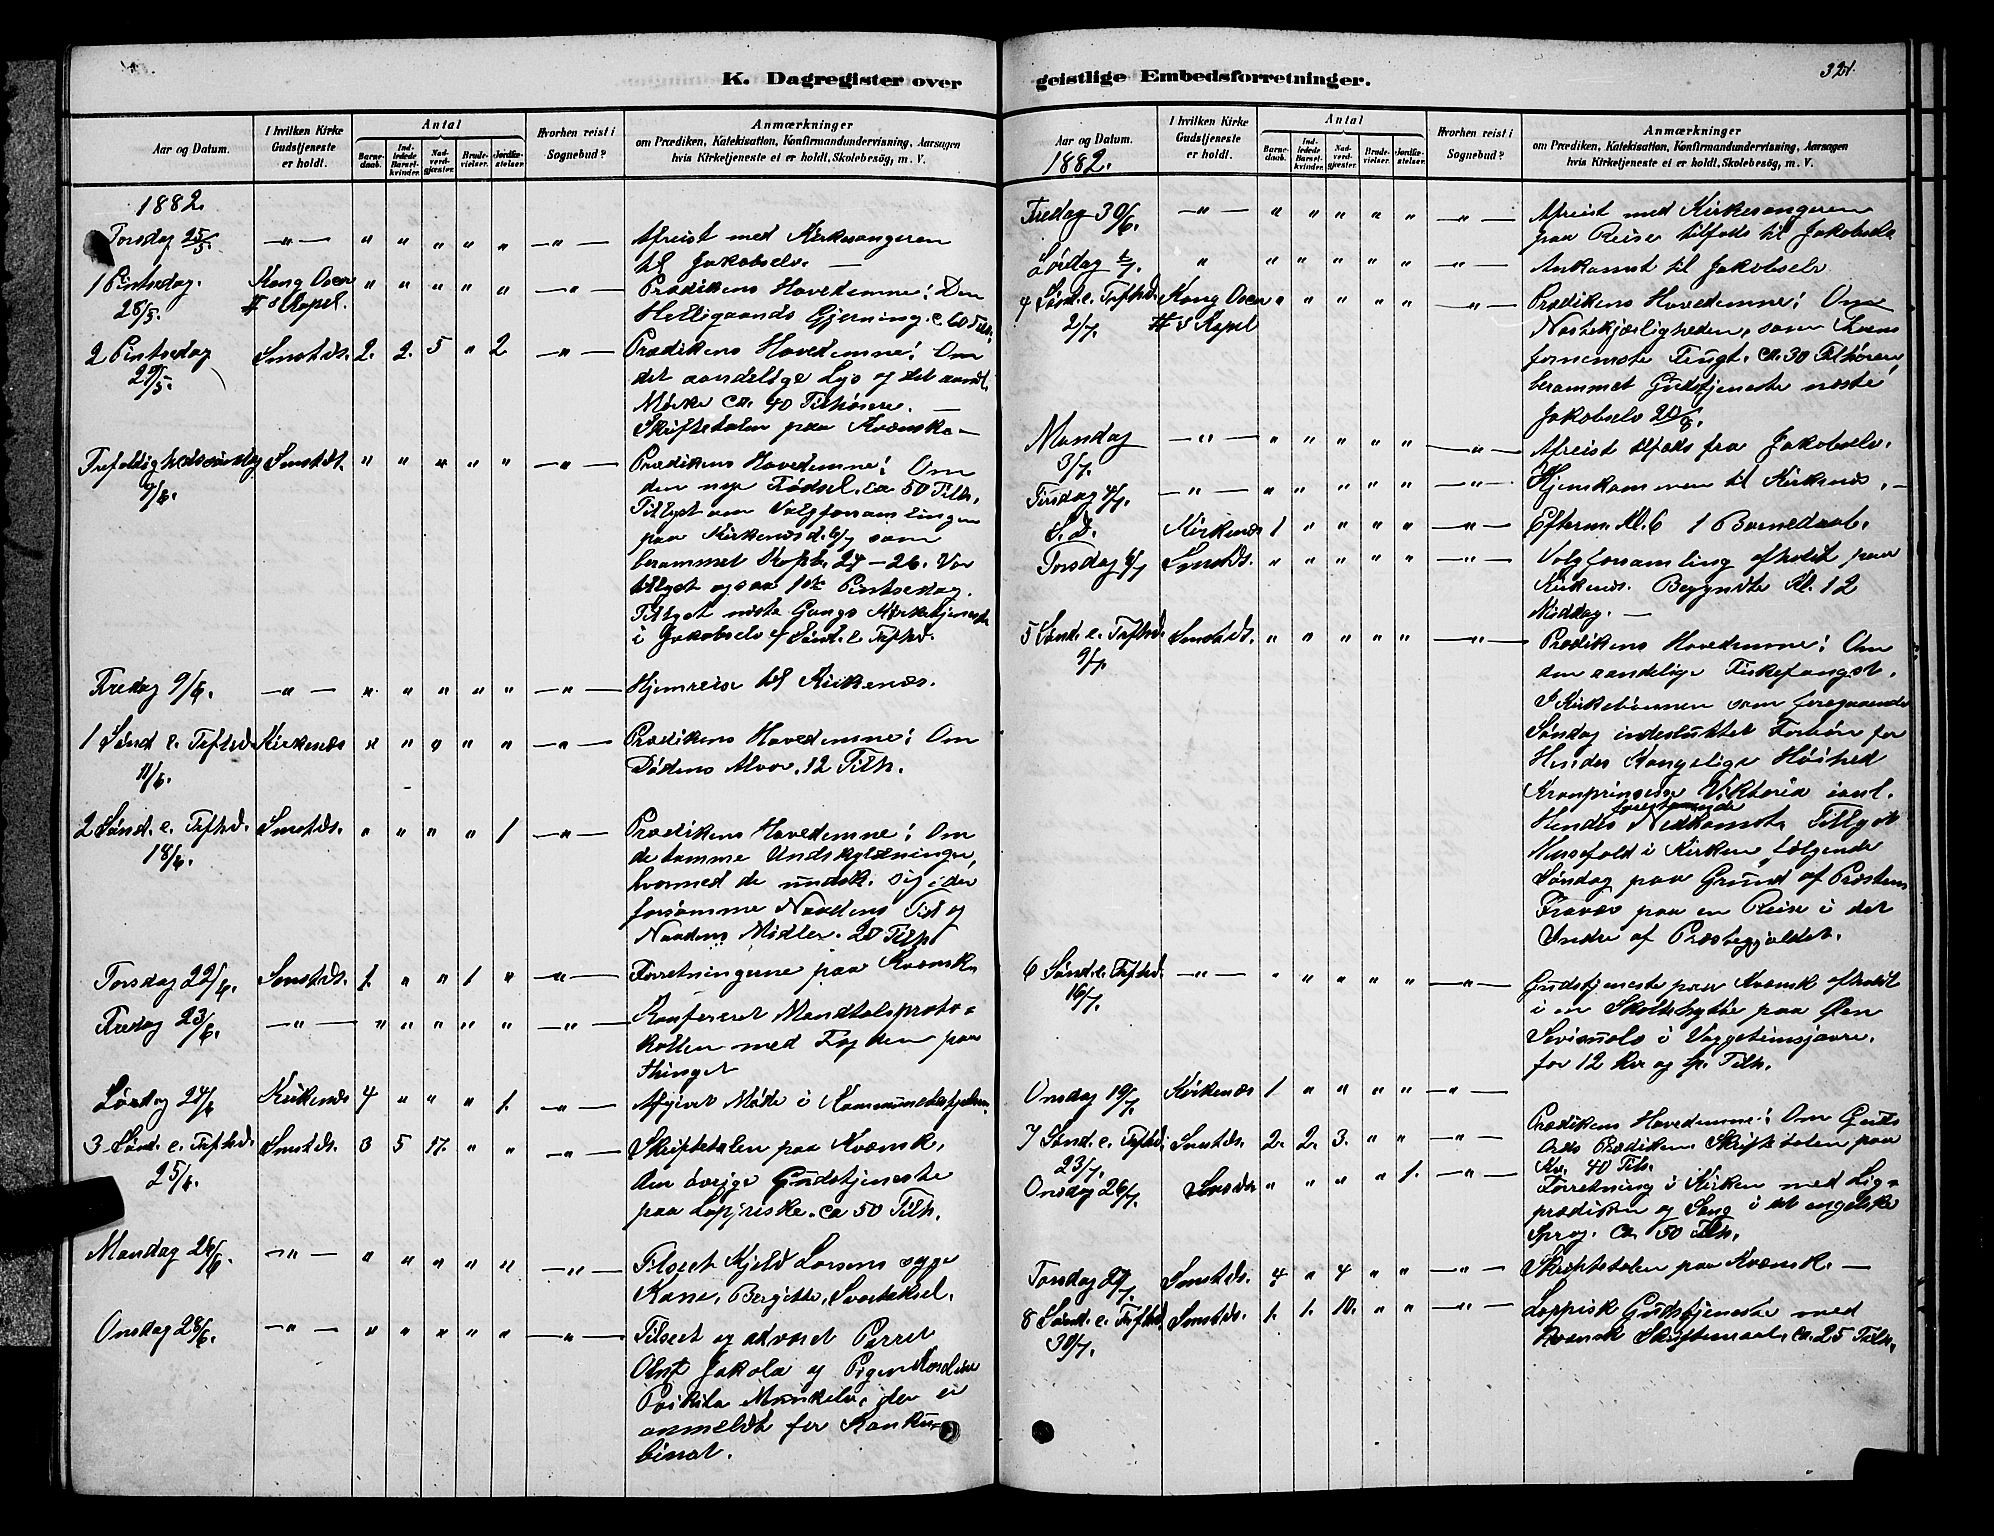 K. Dagregister over
Aar og Datum.
I hvilken Kirke Gudstjeneste er holdt.
Antal
Barnedaab.
Indledede Barselkvinder.
Nadverdgjæster.
Brudevielser.
Jordfæstelser.
Hvorhen reist i Sognebud?
Anmærkninger
om Prædiken, Katekisation, Konfirmandundervisning, Aarsagen
hvis Kirketjeneste ei er holdt, Skolebesög, m. V.
1882.
Torsdag 25/5. —"— " " " " " —"— Afreist med Kirkesangeren
til Jakobselv. —
1 Pintsedag. Kong Oscar " " " " " —"— Prædikens Hovedemne: Den
28/5. II's Kapel. Helligaands Gjerning. c. 60 Tilh.
2 Pintsedag Smstds. 2. 2. 5 " 2 —"— Prædikens Hovedemne: Om
29/5. det aandelige Lys og det aandl.
Mørke ca. 40 Tilhörere. —
Skriftetalen paa Kvænsk. —
Trefoldighedssöndag Smstds. " " " " " —"— Prædikens Hovedemne: Om
4/6. den nye Fødsel. ca 50 Tilh.
Tillyst om Valgforsamlingen
paa Kirkenæs d. 6/7 som
berammet Kopb. 24 — 26. Var
tillyst ogsaa 1ste Pintsedag.
Tillyst næste Gangs Kirketjeneste
i Jakobselv 4 Sönd. e. Trefhd.
Fredag 9/6. —"— " " " " " —"— Hjemreise til Kirkenæs.
1 Sönd e. Trefhd. Kirkenæs " " " " " —"— Prædikens Hovedemne: Om
11/6. Dödens Alvor. 12 Tilh.
2 Sönd. e. Trefhd. Smstds. " " " " 1 —"— Prædikens Hovedemne: Om
18/6. de tomme Undskyldninger,
hvormed de undsk. sig i der
forsömme Naadens Tid og
Naadens Midler. 20 Tilh.
Torsdag 22/6. Smstds. 1. " " 1 " —"— Forretningerne paa Kvænsk.
Fredag 23/6. —"— " " " " " —"— Konfereret Mandtalsproto-
kollen med Fogden paa
Thinget
Lördag 24/6 Kirkenæs 4 " " " 1. —"— Afgivet Möde i Kommunebestyrelsen.
3 Sönd. e. Trefhd. Smstds. 3 5 17. " " —"— Skriftetalen paa Kvænsk.
25/6. den övrige Gudstjeneste
paa Lappiske. ca 50 Tilh.
Mandag 26/6. —"— " " " " " —"— Tilseet Kjeld Larsens syge
Kone, Bergitte, Svartaksel.
Onsdag 28/6. —"— " " " " " —"— Tilseet og advaret Parret
Olaf Jakola og Pigen
Munkelv, der er
anmeldt for Konku-
binat.
geistlige Embedsforretninger.
321.
Aar og Datum.
I hvilken Kirke Gudstjeneste er holdt.
Antal
Barnedaab.
Indledede Barselkvinder.
Nadverdgjæster.
Brudevielser.
Jordfæstelser.
Hvorhen reist i Sognebud?
Anmærkninger
om Prædiken, Katekisation, Konfirmandundervisning, Aarsagen
hvis Kirketjeneste ei er holdt, Skolebesög, m. V.
1882.
Fredag 30/6. —"— " " " " " —"— Afreist med Kirkesangeren
paa Reise tilfods til Jakobselv
Lördag 1/7. " " " " " " —"— Ankomst til Jakobselv
4 Sönd. e. Trefhd. Kong Oscar " " " " " —"— Prædikens Hovedemne: Om
2/7. II's Kapel Næstekjærligheden, som Troens
fornemste Frugt. ca. 30 Tilhörere,
berammet Gudstjeneste næste
Jakobselv 20/8.
Mandag —"— " " " " " —"— Afreist tilfods fra Jakobselv.
3/7.
Tirsdag 4/7. —"— " " " " " —"— Hjemkommen til Kirkenæs. —
S. D. Kirkenæs 1 " " " " —"— Efterm. Kl. 6 1 Barnedaab.
Torsdag 6/7 Smstds. " " " " " —"— Valgforsamling afholdt paa
Kirkenæs. Begyndte Kl. 12
Middag. —
5 Sönd. e. Trefhd. Smstds. " " " " " —"— Prædikens Hovedemne: Om
9/7. den aandelige Fiskefangst.
I Kirkebönnen som foregaaende
Söndag indesluttet Forbön for
Hendes Kongelige Höihed
Kronprinsesse Viktoria i anl.
forestaaende
Hendes Nedkomst. Tillyst
Messefald i Kirken følgende
Söndag paa Grund af Præstens
Fravær paa en Reise i det
Indre af Præstegjældet.
6 Sönd. e. Trefhd. —"— " " " " " —"— Gudstjeneste paa Kvænsk afholdt
16/7. i en Skoltehytte paa Öen
i Vaggetimsjavre.
for 12 Kv og Lp. Tilh.
Onsdag 19/7. Kirkenæs 1 " " " " —"—
7 Sönd. e. Trefhd. Smstds. 2. 2. 3. " " —"— Prædikens Hovedemne: Om Guds
23/7. Ords Prædiken. Skriftetalen paa
Kv. 40 Tilh.
Onsdag 26/7. Smstds " " " " 1. —"— Forretning i Kirken med Lig-
prædiken og Sang i det engelske
Sprog. ca 50 Tilh.
Torsdag 27/7. Smstds. 4 " 4 " " —"— Skriftetalen paa Kvænsk. —
8 Sönd. e. Trefhd. Smstds. 1. 1. 10. " " —"— Lappisk Gudstjeneste med
30/7. Kvænsk Skriftemaal. ca. 25 Tilh.